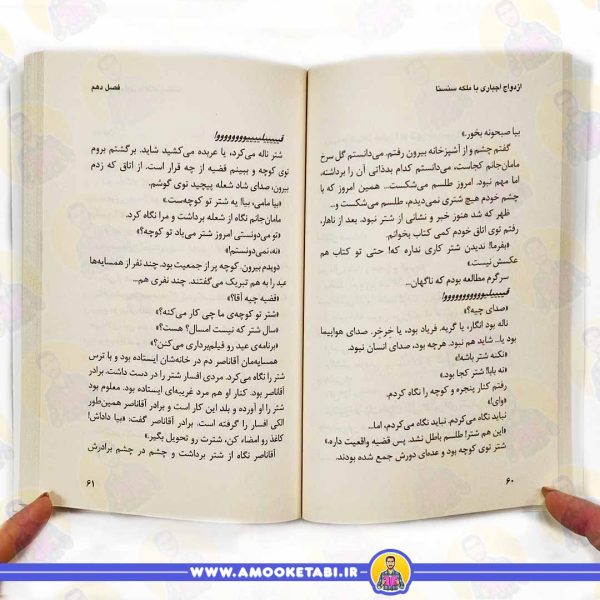 ازدواج اجباری با ملکه سنستا
بیا صبحونه بخور.»
گفتم چشم و از آشپزخانه بیرون رفتم. می‌دانستم گل سرخ
مامان‌جانم کجاست، می‌دانستم کدام بدذاتی آن را برداشته،
اما مهم نبود. امروز طلسم می‌شکست... همین امروز که با
چشم خودم هیچ شتری نمی‌دیدم، طلسم می‌شکست و..
ظهر که شد هنوز خبر و نشانی از شتر نبود. بعد از ناهار،
رفتم توی اتاق خودم کمی کتاب بخوانم.
«بفرما! ندیدن شتر کاری نداره که! حتی تو کتاب هم
عکسش نیست.»
سرگرم مطالعه بودم که ناگهان...
«صدای چیه؟»
ناله بود انگار، یا گریه. فریاد بود، یا خِرخِر. صدای هواپیما
بود یا... شاید هم نبود. هرچه بود، صدای انسان نبود.
«نکنه شتر باشه!»
«نه بابا! شتر کجا بود.»
رفتم کنار پنجره و کوچه را نگاه کردم.
«وای!»
نباید نگاه می‌کردم، نباید نگاه می‌کردم، اما...
«این هم شتر! طلسم باطل نشد. پس قضیه واقعیت داره.»
شتر توی کوچه بود و عده‌ای دورش جمع شده بودند.
۶۰
فصل دهم
شتر ناله می‌کرد، یا عربده می‌کشید شاید. برگشتم بروم
توی کوچه و ببینم قضیه از چه قرار است. از اتاق که زدم
بیرون، صدای شاد شعله پیچید توی گوشم.
«بیا مامی، بیا! یه شتر تو کوچه‌ست.»
مامان‌جانم نگاه از شعله برداشت و مرا نگاه کرد.
«تو می‌دونستی امروز شتر می‌یاد تو کوچه؟»
«نه، نمی‌دونستم!»
دویدم بیرون. کوچه پر از جمعیت بود. چند نفر از همسایه‌ها
عید را به هم تبریک می‌گفتند. چند نفری هم...
«قضیه چیه آقا؟»
«شتر تو کوچه‌ی ما چی کار می‌کنه؟»
«سال شتر که نیست امسال؟ هست؟»
«برنامه‌ی عید رو فیلم‌برداری می‌کنن؟»
همسایه‌مان آقاناصر دم در خانه‌شان ایستاده بود و با ترس
شتر را نگاه می‌کرد. مردی افسار شتر را در دست داشت. برادر
آقاناصر بود. کنار او هم مرد غریبه‌ای ایستاده بود. معلوم بود
شتر را او آورده و بلد این کار است و برادر آقاناصر همین‌طور
الکی افسار را گرفته است. برادر آقاناصر گفت: «بیا داداش!
کاغذ رو امضاء کن، شترت رو تحویل بگیر.»
آقاناصر نگاه از شتر برداشت و چشم در چشم برادرش
۶۱
WWW.AMOOKETABI.IR